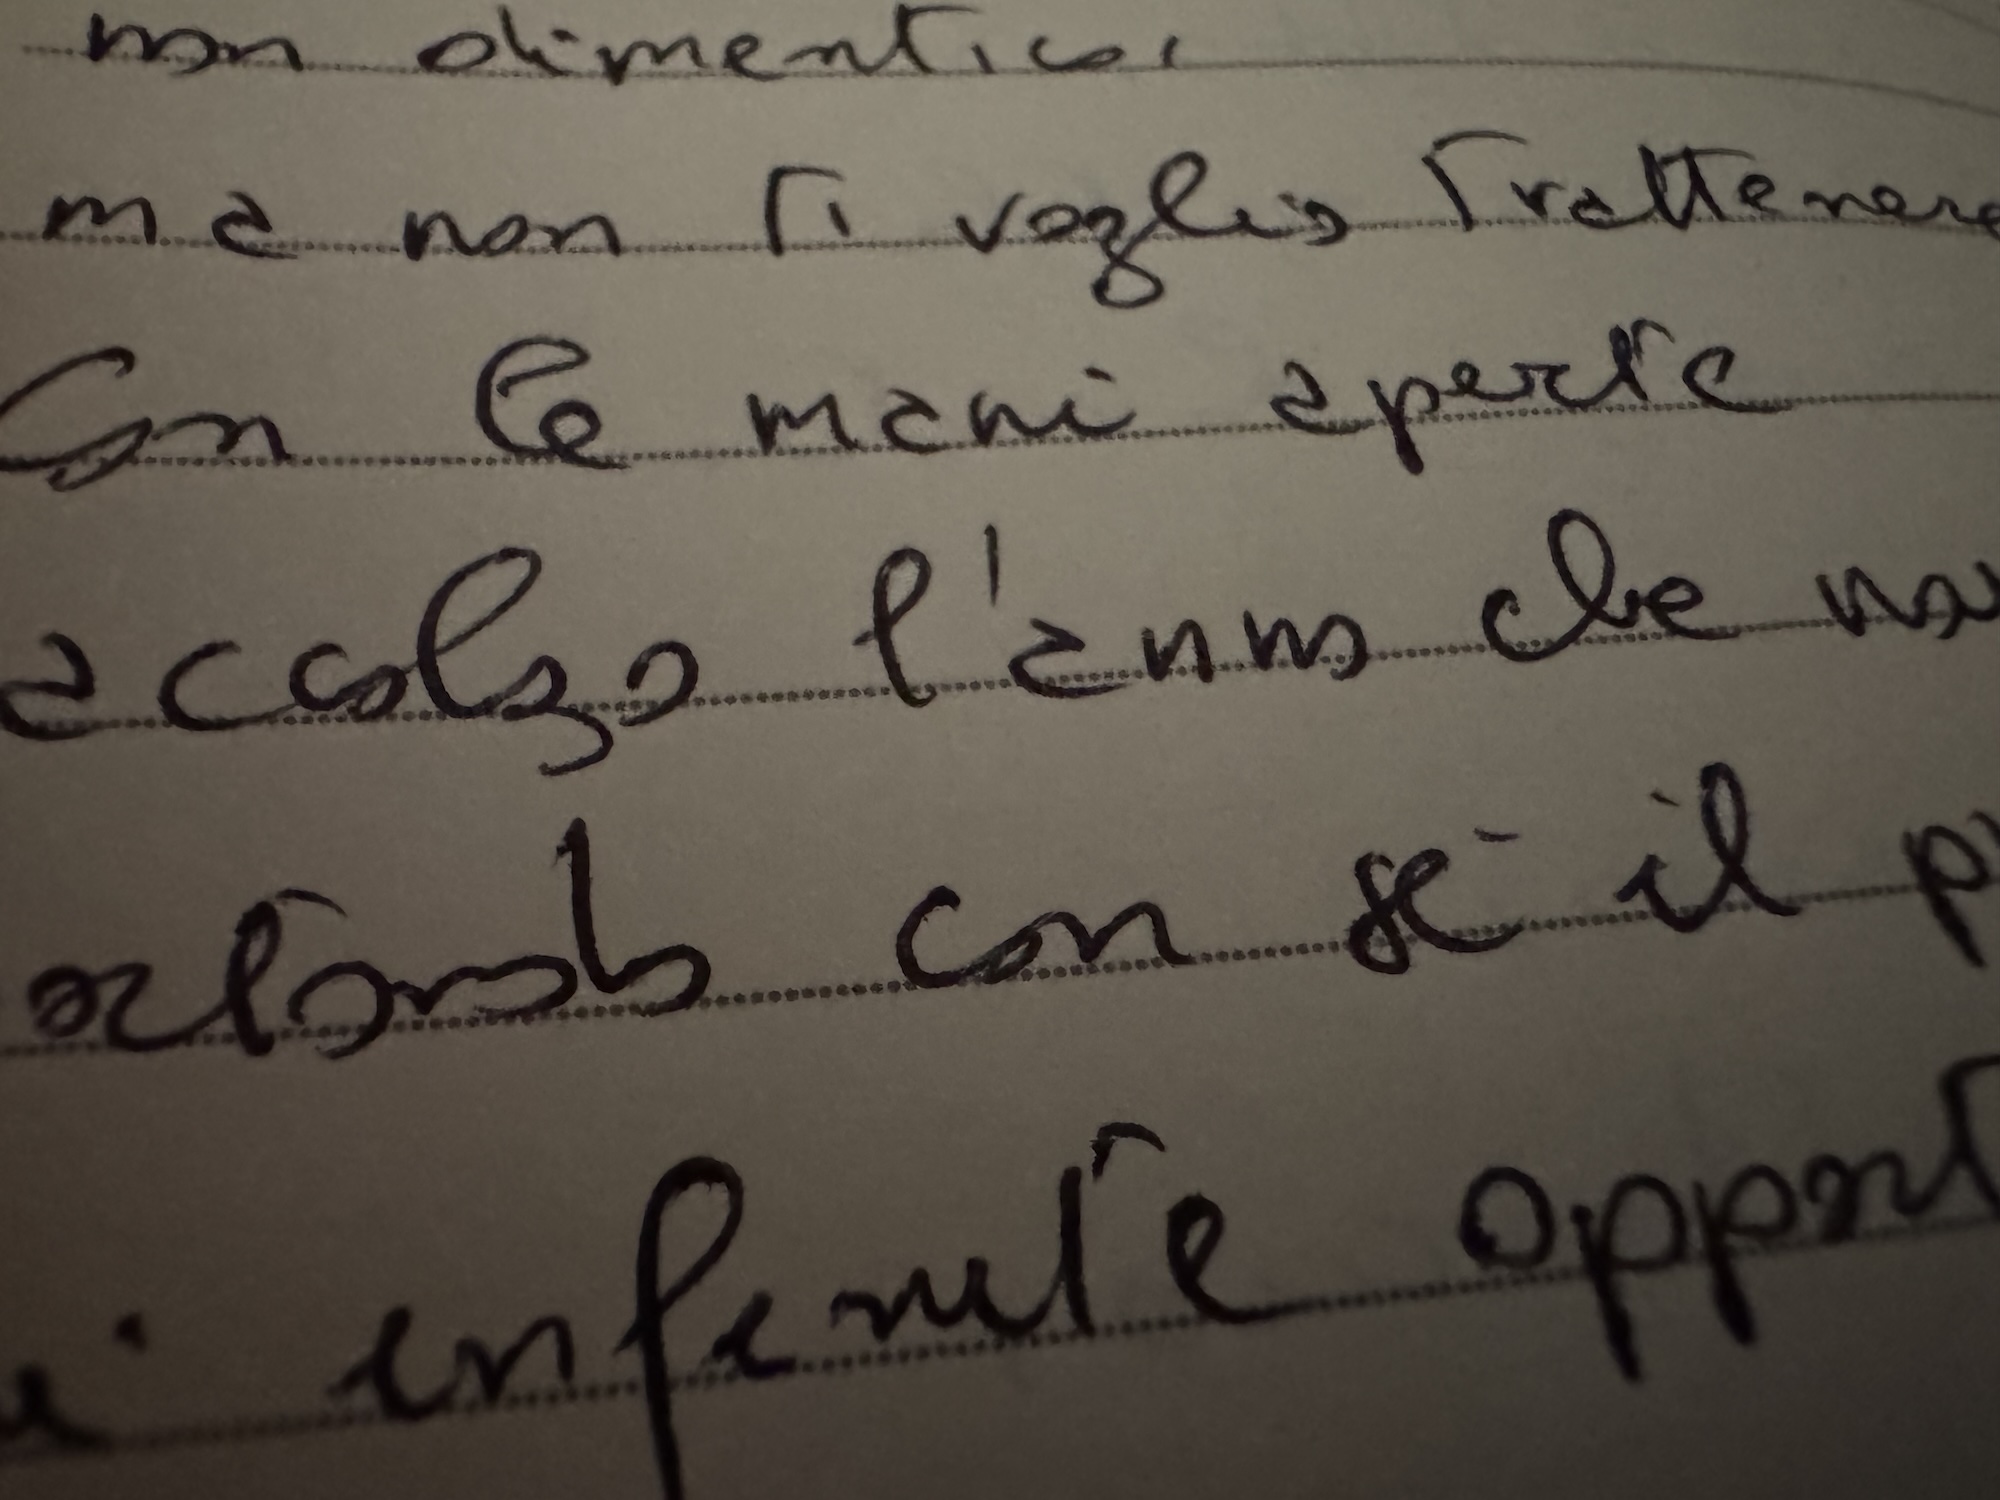 non dimentico,
ma non ti voglio trattenere
Con le mani aperte
accolgo l'anno che
ortando con sé il
infinite